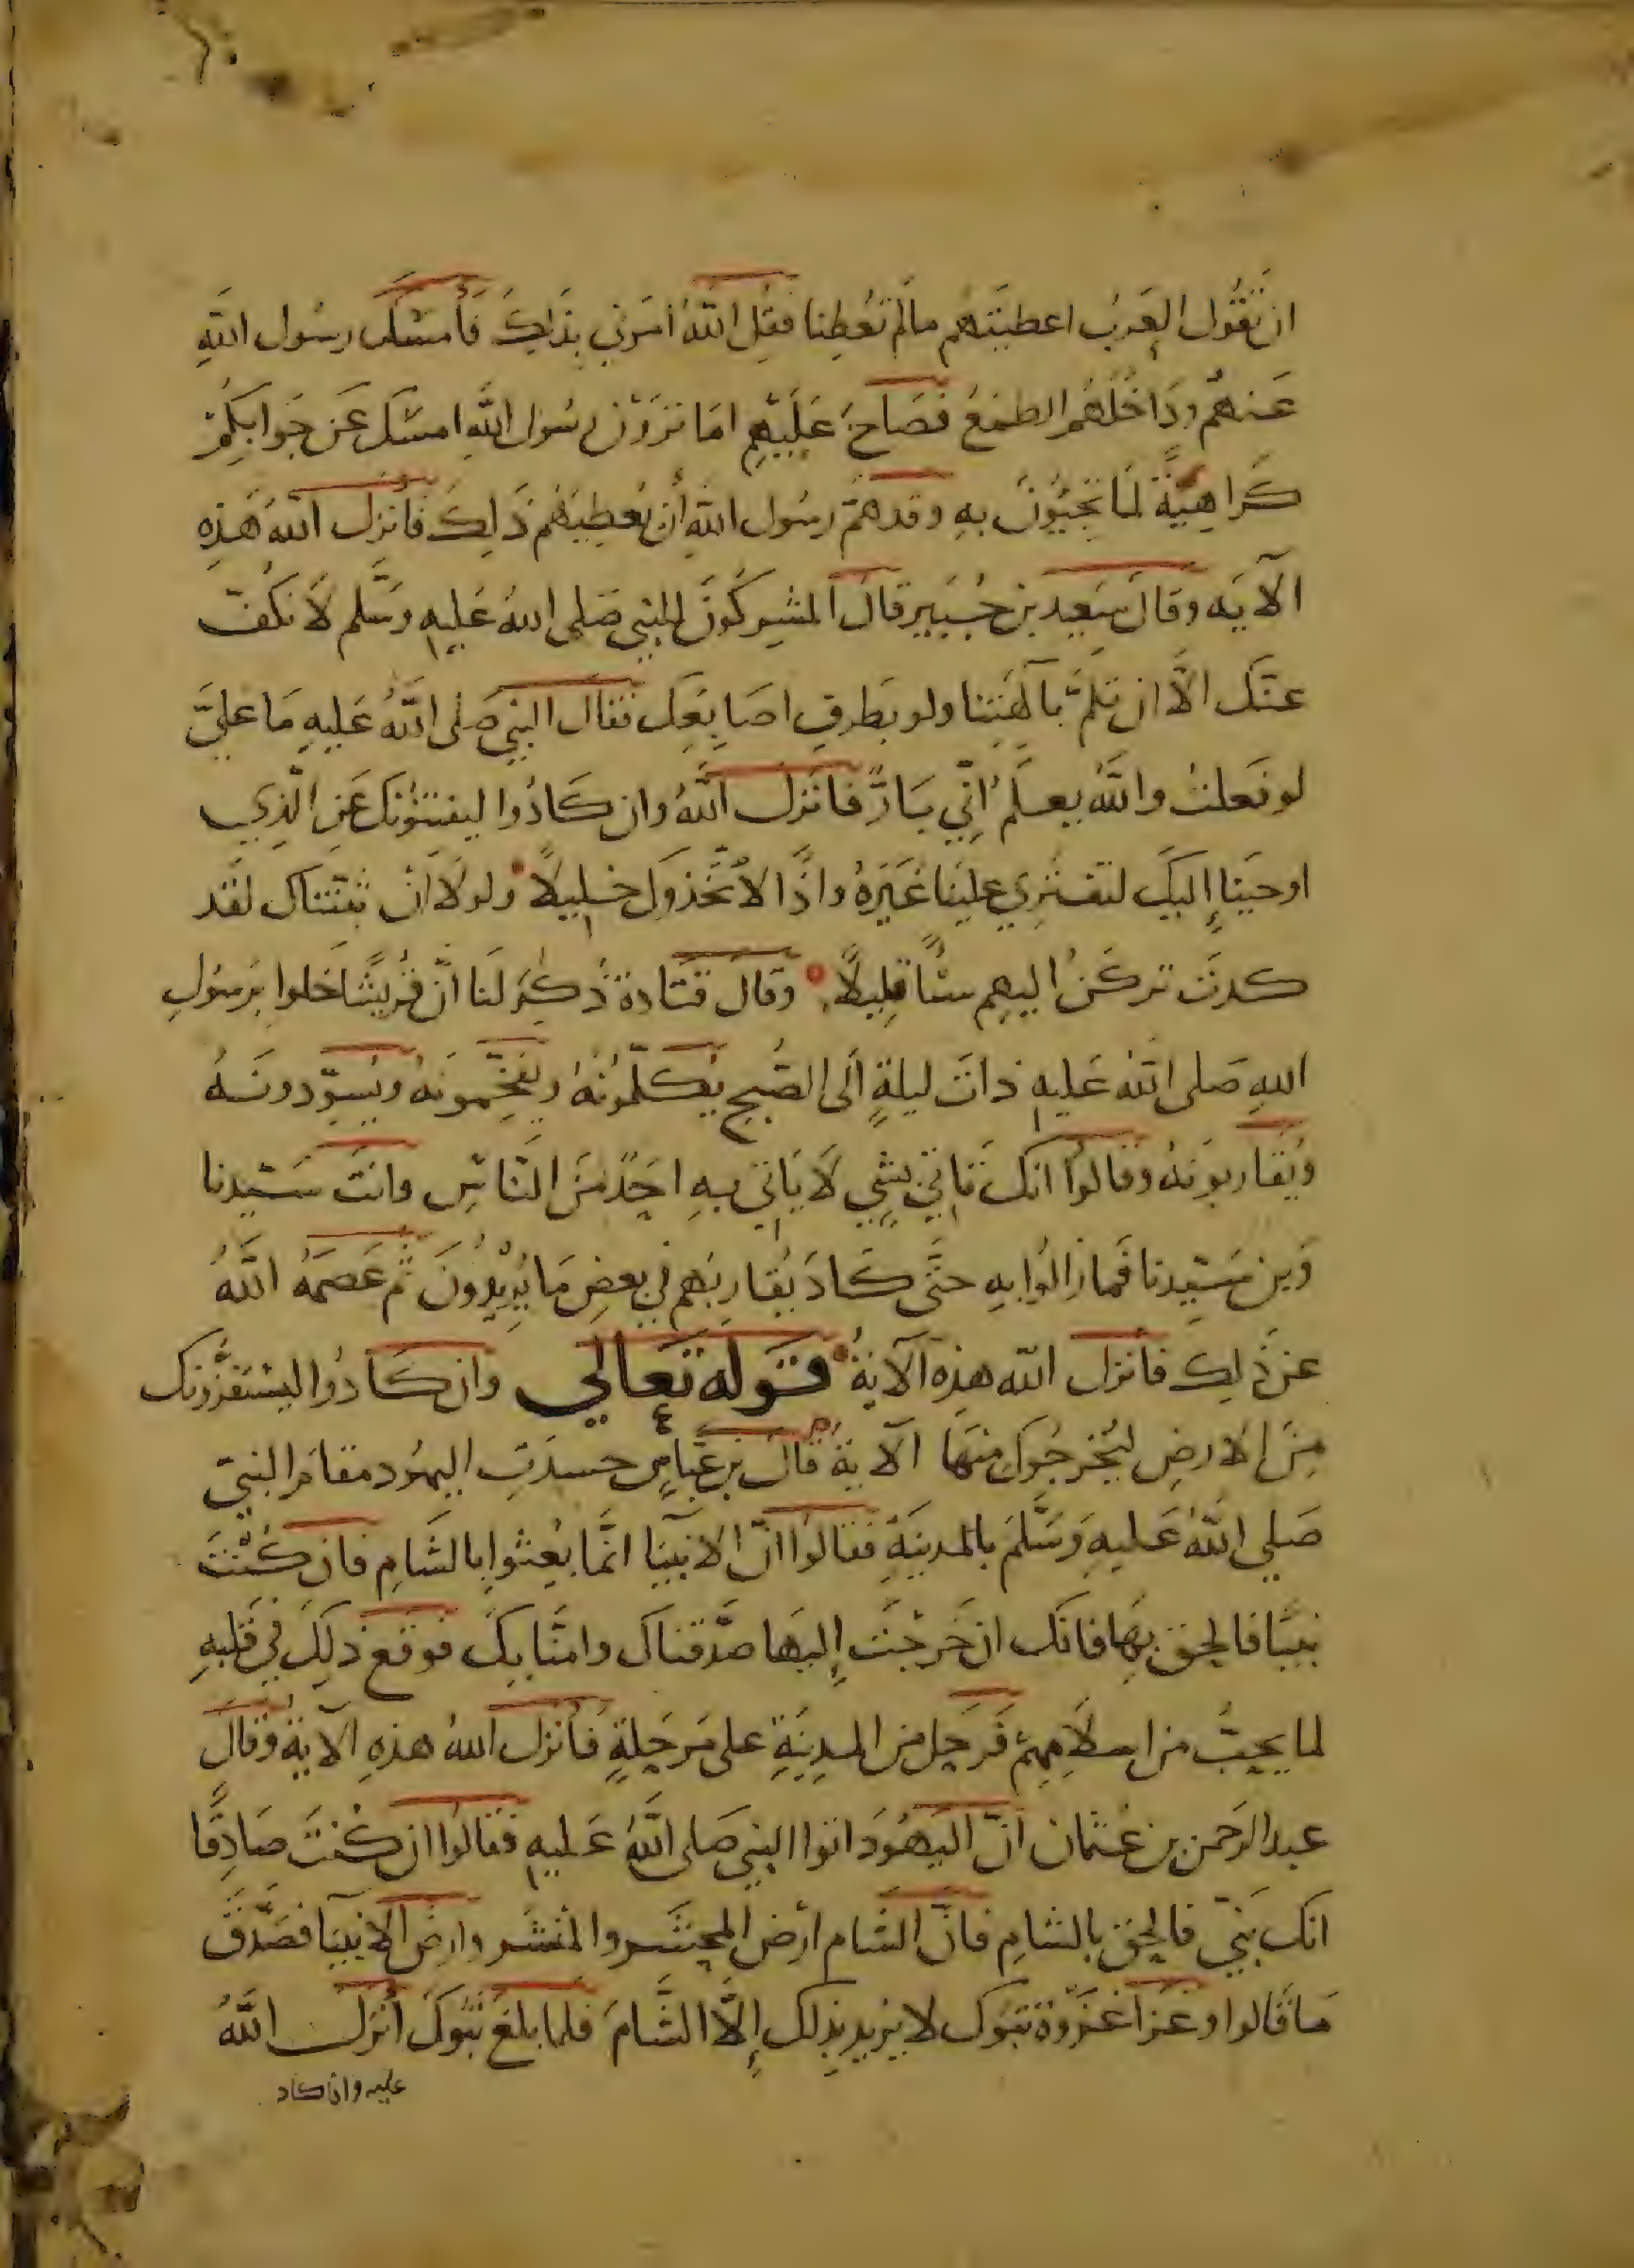 ان تَقُول العَرَبُ اعطيتَهُم مالم تُعطِنا فقُل اللّهُ امَرَني بذلِكَ فَأمسَكَ رسُول اللهِ
عَنهُم ودَاخَلَهُم الطمَعُ فصَاحَ عَلَيهِم امَا تَرَوْن رسُول اللهِ امسَك عَن جَوابِكُمْ
كَراهِيَّةً لمَا تجيُونَ بهِ وقد همَّ رسُول اللهِ أن يُعطِيَهُم ذَلِكَ فانزل اللهُ هَذِهِ
الآيَه وقالَ سَعيد بن جُبَير قالَ المشركُونَ للنبي صَلى اللهُ عَليهِ وسَّلم لا نَكُفّ
عنك الَّا ان تلمَّ بآلهَتِنا ولو بطَرفِ اصَابِعَك فقالَ النبي صَلى اللَّهُ عَليهِ مَا عَليَّ
لو فعَلتُ واللَّهُ يعلَمُ انّي بَارٌّ فانَزَل اللَّهُ وان كَادُوا ليفتنُونَك عَنِ الّذِي
اوحَينا إليكَ لتفترِي علينَا غَيَرهُ واذًا لاتَّخَذوكَ خليلًا ولولا ان ثبتناك لقَد
كدتَ تركَنُ اليهِم شئًا قليلًا وقال قتَادة ذُكِرَ لنَا انّ قُريشًا خَلوا برَسُولِ
اللهِ صَلى اللهُ عَليهِ ذاتَ ليلةٍ الَى الصُبح يُكلّمُونهُ ويفخّمونَهُ ويُسَوّدونَهُ
ويُقَاربونَهُ وقالوا انك تَاتي بشِي لَا يَاتي بهِ احَدٌ منَ النَّاسِ وانتَ سَيّدنا
وَبن سَيّدِنا فَما زَالُوا بهِ حتَّى كَادَ يُقارِبَهم في بعضِ مَا يُريدُونَ ثم عَصمَهُ اللَّهُ
عن ذَلِك فأنزل اللّه هذِه الآيةُ قَولَه تَعَالي وان كَادُوا ليستفزُّونك
مِنَ الارضِ ليُخرجُوكَ مِنهَا الآية قالَ بن عَبّاسٍ حسدَتِ اليهُود مقامَ النبيّ
صَلي اللّهُ عَليهِ وَسَّلمَ بالمدينَةِ فقالوا انّ الانبيَا انَّما بُعِثوا بالشَامِ فان كُنْتَ
نبيًّا فالحق بهَا فانّك ان خَرجَتَ إليهَا صَدّقناك وامنَّا بِكَ فوقع ذلِكَ في قَلبِهِ
لما يحِبُّ من اسلَامِهِمْ فَرحَل من المدِينَةِ على مَرحَلةٍ فأنزل اللهُ هذهِ الآيةُ وقالَ
عبد الرَحمن بن عُثمان انّ اليَهُودَ اتوا النبي صَلى اللَّهُ عَليهِ فقالوا ان كُنتَ صَادِقًا
انك نَبيّ فالحِق بالشامِ فانّ الشام أرضُ المحشَر والمنشَر وارضُ الانبيَا فصَدَّقَ
مَا قَالوا وغَزا غَزوة تبوك لا يريد بذلك إلَّا الشَّامَ فلما بلغَ تبُوكَ أنزل اللَّهُ
عليه وان كاد